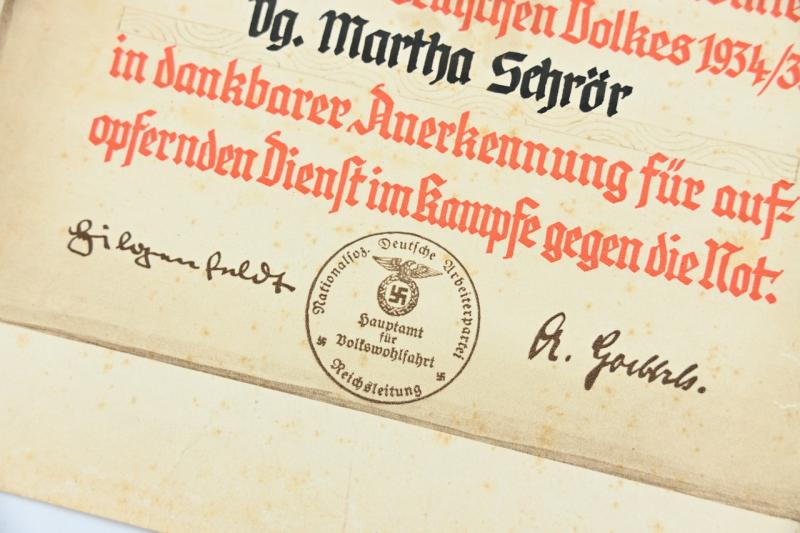 Volkes 1934/3
Vg. Martha Schrör
in dankbarer Anerkennung für auf-
opfernden Dienst im Kampfe gegen die Not.
Hilgenfeldt
Nationalsoz. Deutsche Arbeiterpartei
Hauptamt
für
Volkswohlfahrt
Reichsleitung
Dr. Goebbels.